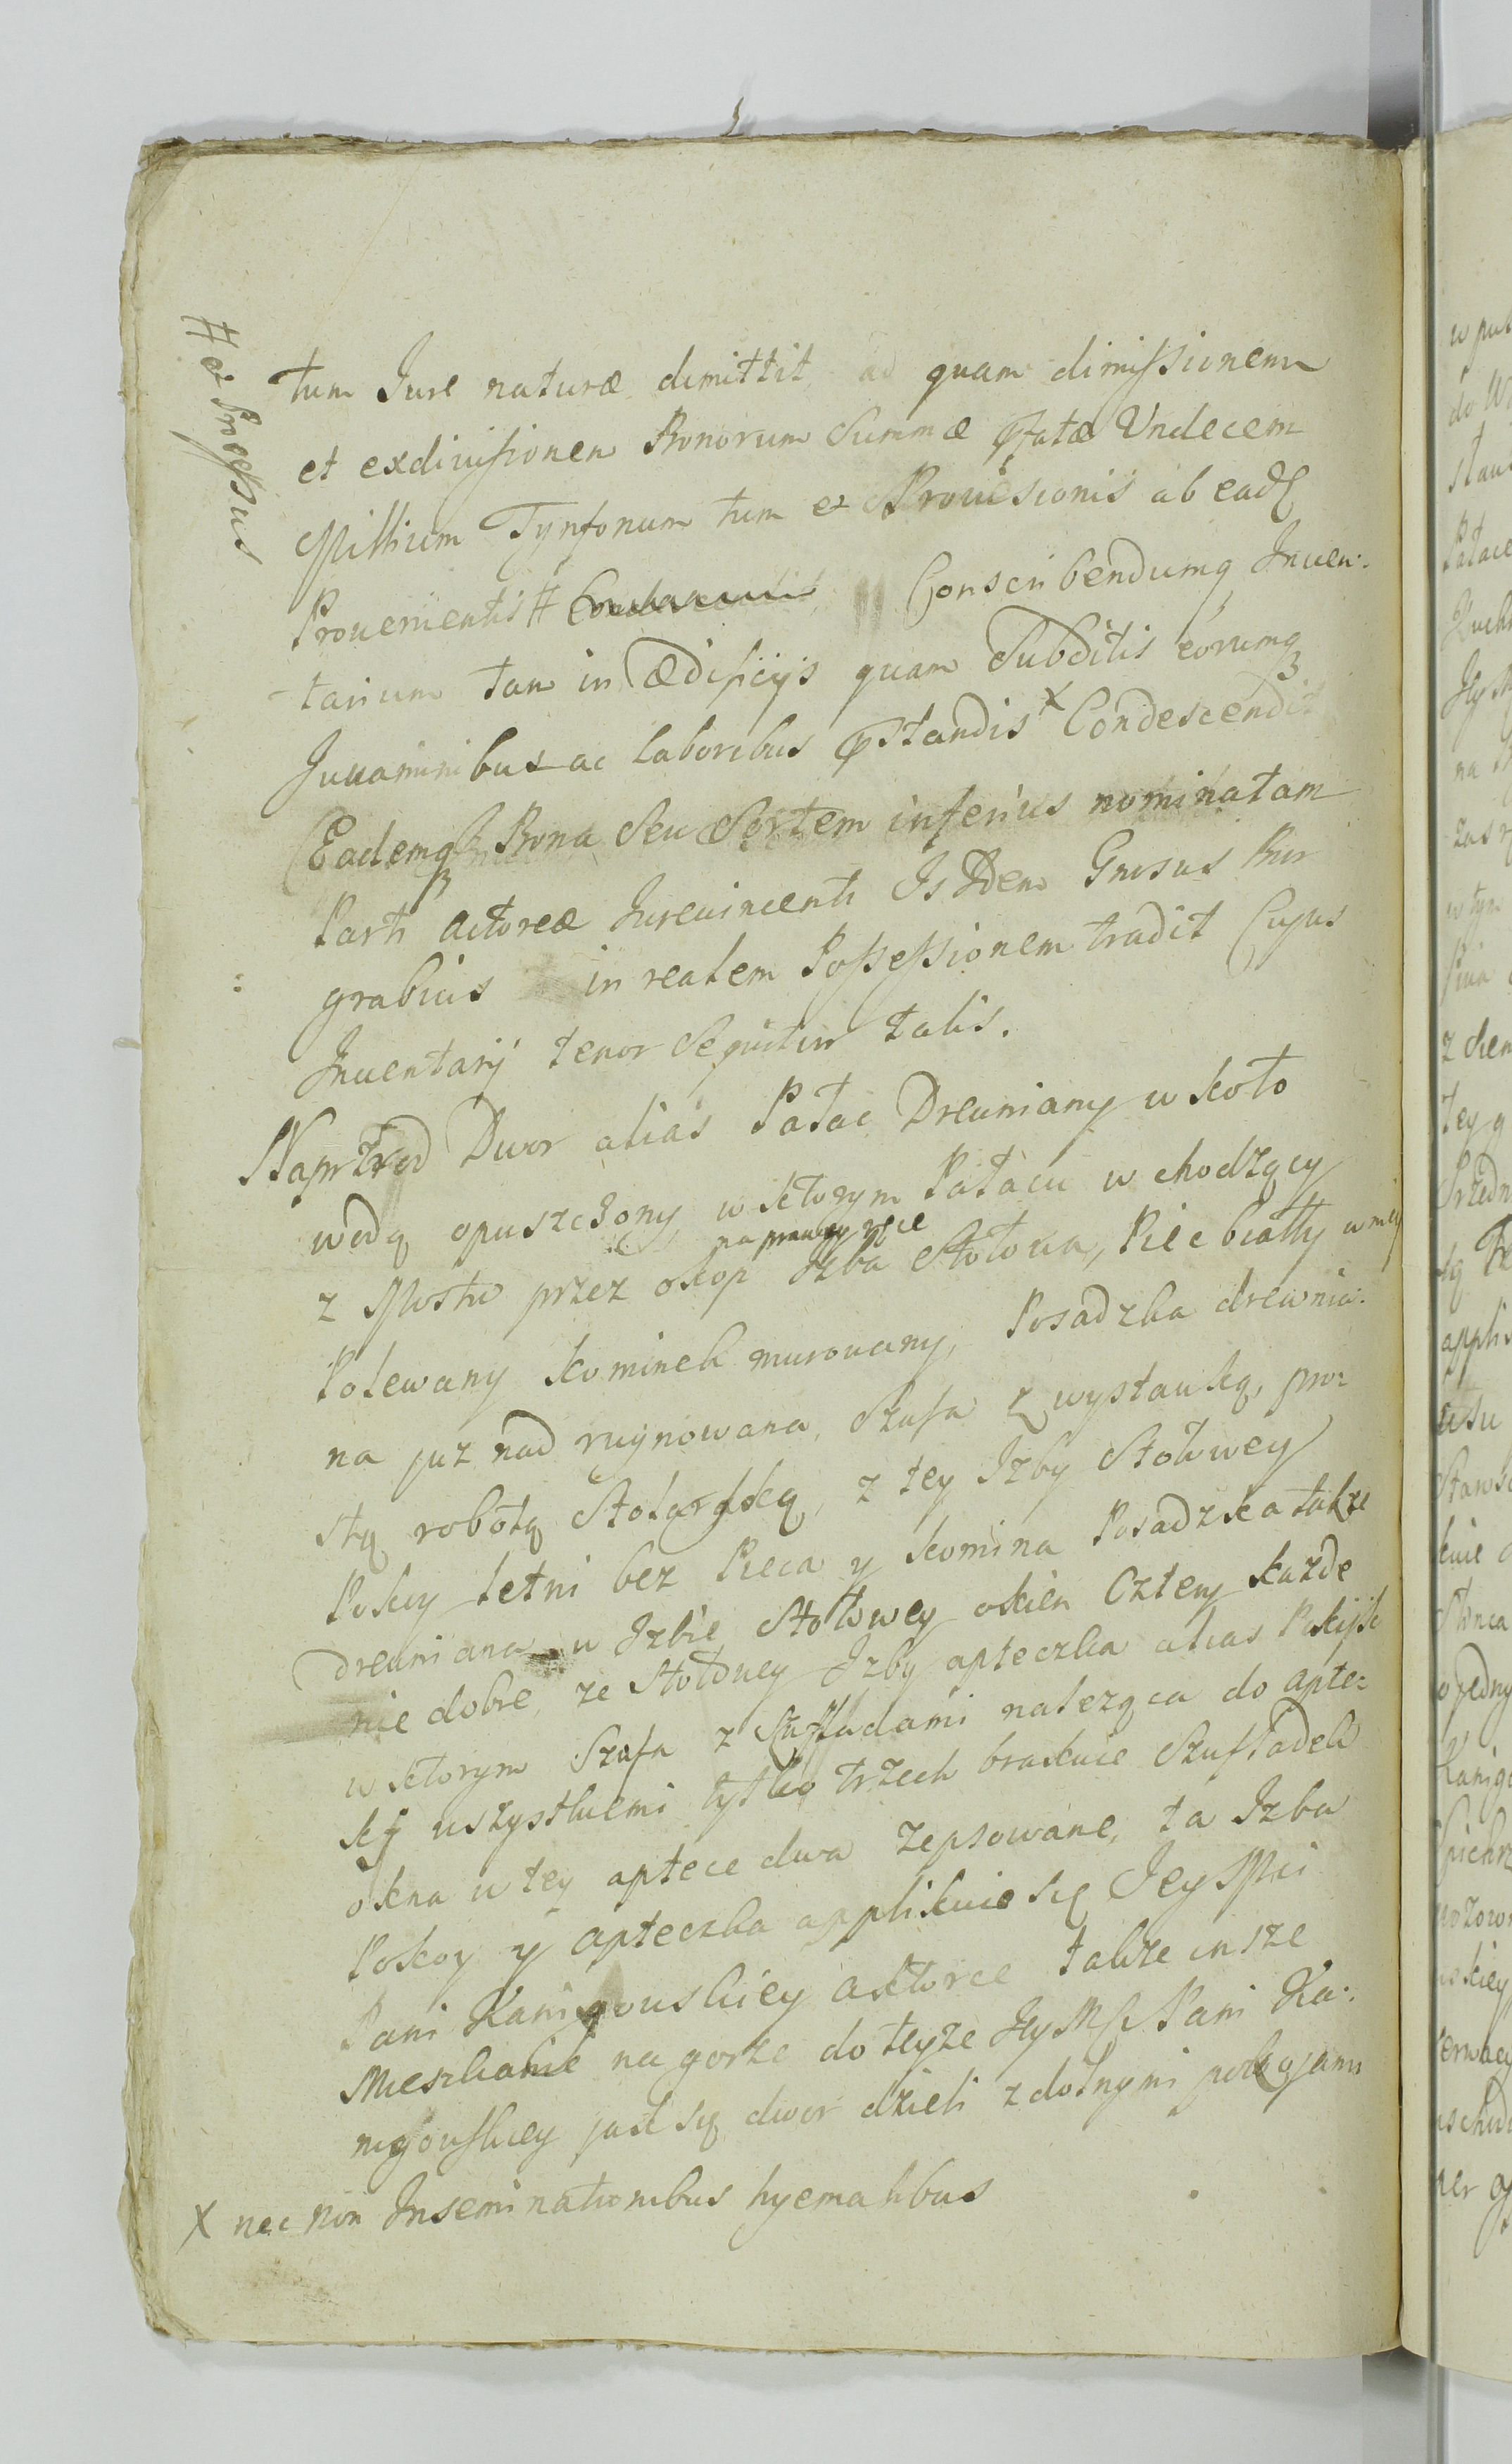 # et Processus
tum Jure naturæ dimittit ad quam dimissionem
et exdivisionem Bonorum Summæ Pfatæ Undecem
Millium Tynfonum tum et Provisionis ab ead
Provenientis # Conscribendumq Inven:
tarium tam in Ædificijs quam Subditis eorumq
Juvaminibus ac laboribus Pstandis x Condescendit
Eademq Bona Seu Sortem inferius nominatam
Parti actoreæ Jurevincenti Isdem Gnosus Bur
grabius in realem Possessionem tradit Cujus
Inventarij tenor Sequitur talis.
Naprzod Dwor alias Pałac Drewniany w koło
wodą opuszczony, w ktorym Pałacu w chodzący
na prawey ręce
z Mostu przez okop Izba Stołowa, Piec biały w niey
Polewany kominek murowany, Posadzka drewnia:
na juz nad ruynowana, Szafa z wystawką, pro:
stą robotą Stolarską, z tey Izby Stołowey
Pokoy letni bez Pieca y komina Posadzka także
drewniana w Izbie Stołowey okien Cztery każde
nie dobre, ze Stołowey Izby apteczka alias Pokoik
w ktorym Szafa z Szufladami należąca do apte:
ki wszystkiemi tylko trzech brakuie Szufladek
okna w tey aptece dwa zepsowane, ta Izba
Pokoy y apteczka applikuie się Jey Mci
Pani Kanigowskiey aktorce także insze
Mieszkanie na gorze do teyże Jey Mci Pani Ka:
nigowskiey jak się dwor dzieli z dolnymi pokojami
x nec non Inseminationibus hyemalibus